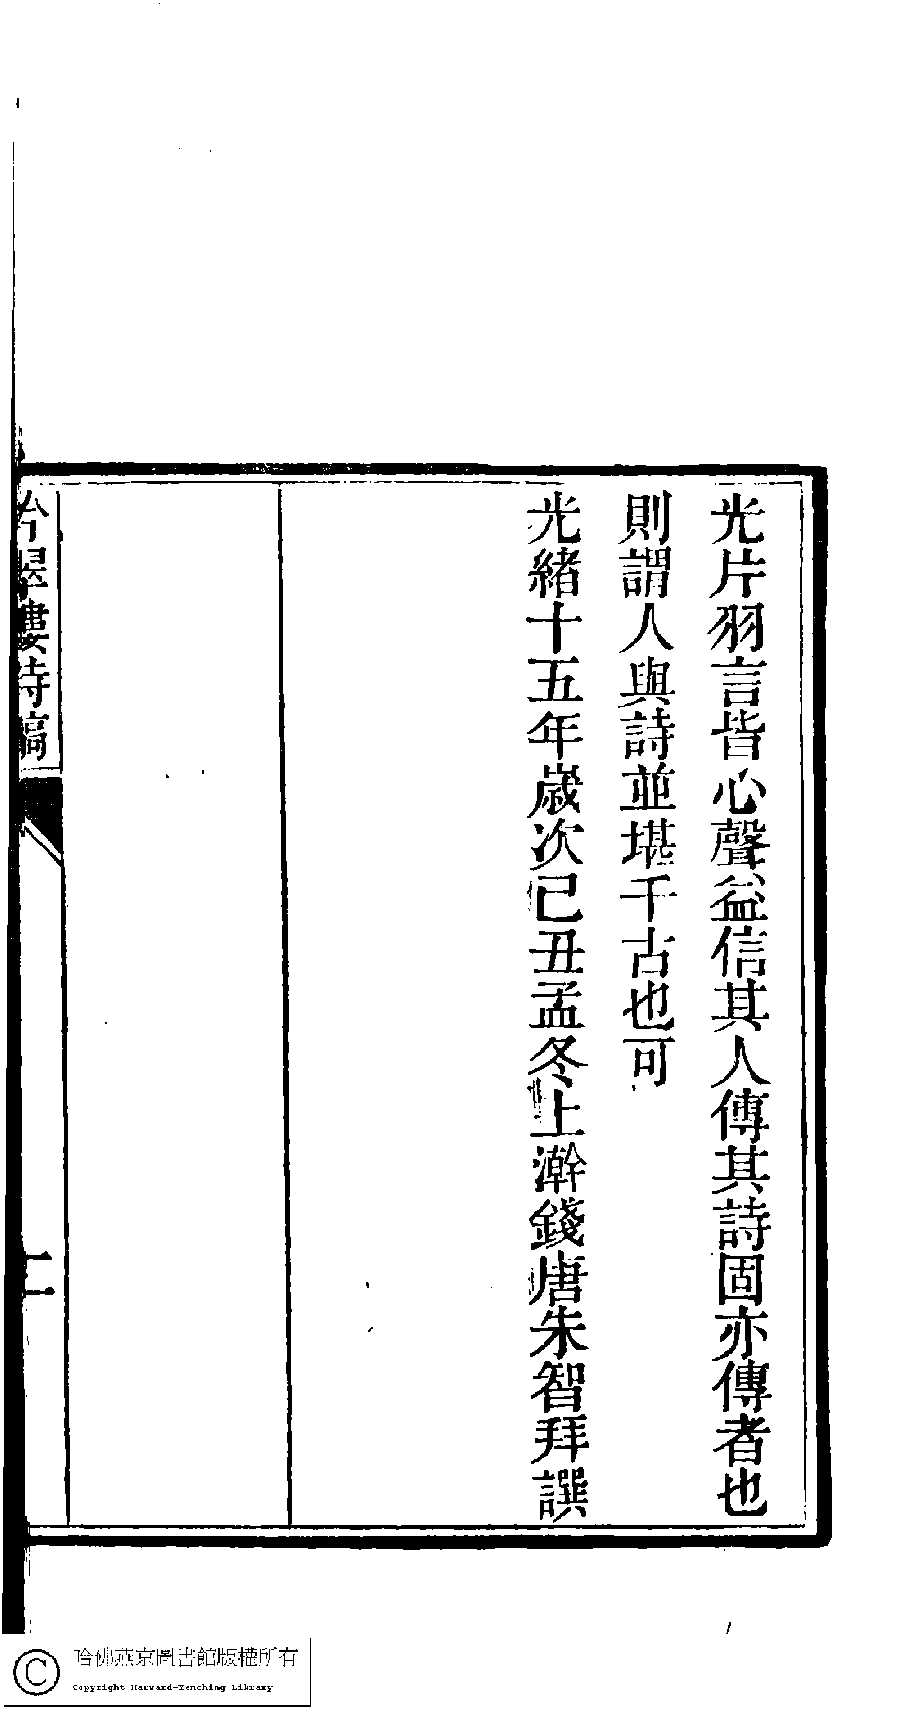 光片羽言皆心聲益信其人傳其詩固亦傳者也
則謂人與詩並堪千古也可
光緒十五年歲次己丑孟冬上澣錢唐朱智拜譔
翠樓詩稿
二
哈佛燕京圖書館版權所有
Copyright Harvard-Yenching Library